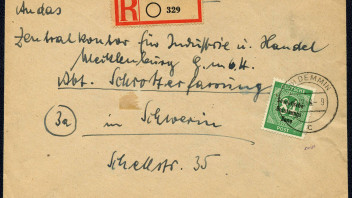 An das
R 329
Zentralkontor für Industrie u. Handel
Mecklenburg G.m.b.H.
Abt. Schrotterfassung
DEMMIN
DEUTSCHE
POST
c
3a) in Schwerin
Schellstr. 35